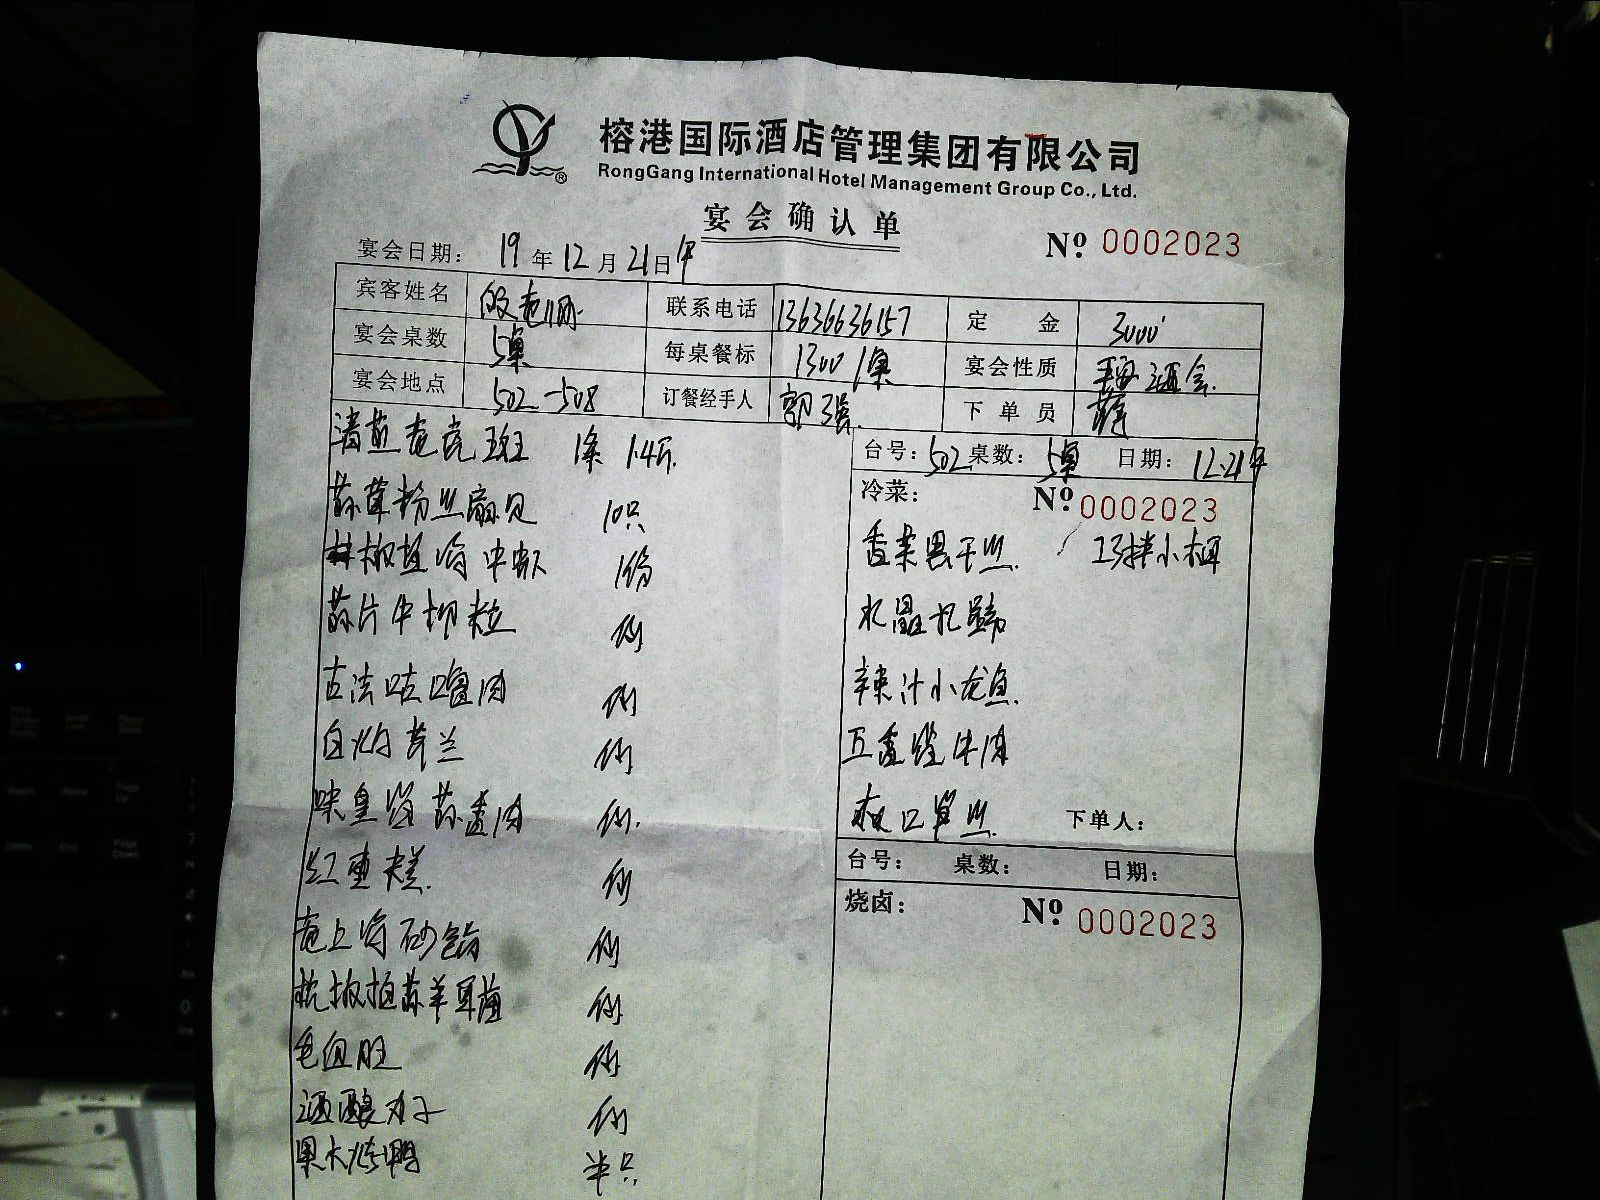 榕港国际酒店管理集团有限公司
RongGang International Hotel Management Group Co., Ltd.
宴会确认单
Nº 0002023
宴会日期: 19年12月21日午
宾客姓名 联系电话 13636636157 定金 3000
宴会桌数 5桌 每桌餐标 1300/桌 宴会性质
宴会地点 502-508 订餐经手人 郭强 下单员 薛
清蒸龙虎斑 1条 1.4斤
台号: 502 桌数: 5桌 日期: 12.21午
冷菜: Nº 0002023
蒜茸粉丝扇贝 10只
香菜黑干丝 巧拌小木耳
1份
蒜片牛柳粒 1份
水晶
古法咕噜肉 1份
辣汁小龙鱼
白灼芥兰 1份
五香 牛肉
味皇 蒜香肉 1份
爽口 丝 下单人:
红 糕 1份
台号: 桌数: 日期:
烧卤: Nº 0002023
砂 1份
羊耳 1份
毛血旺 1份
酒酿 子 1份
果木烤鸭 半只